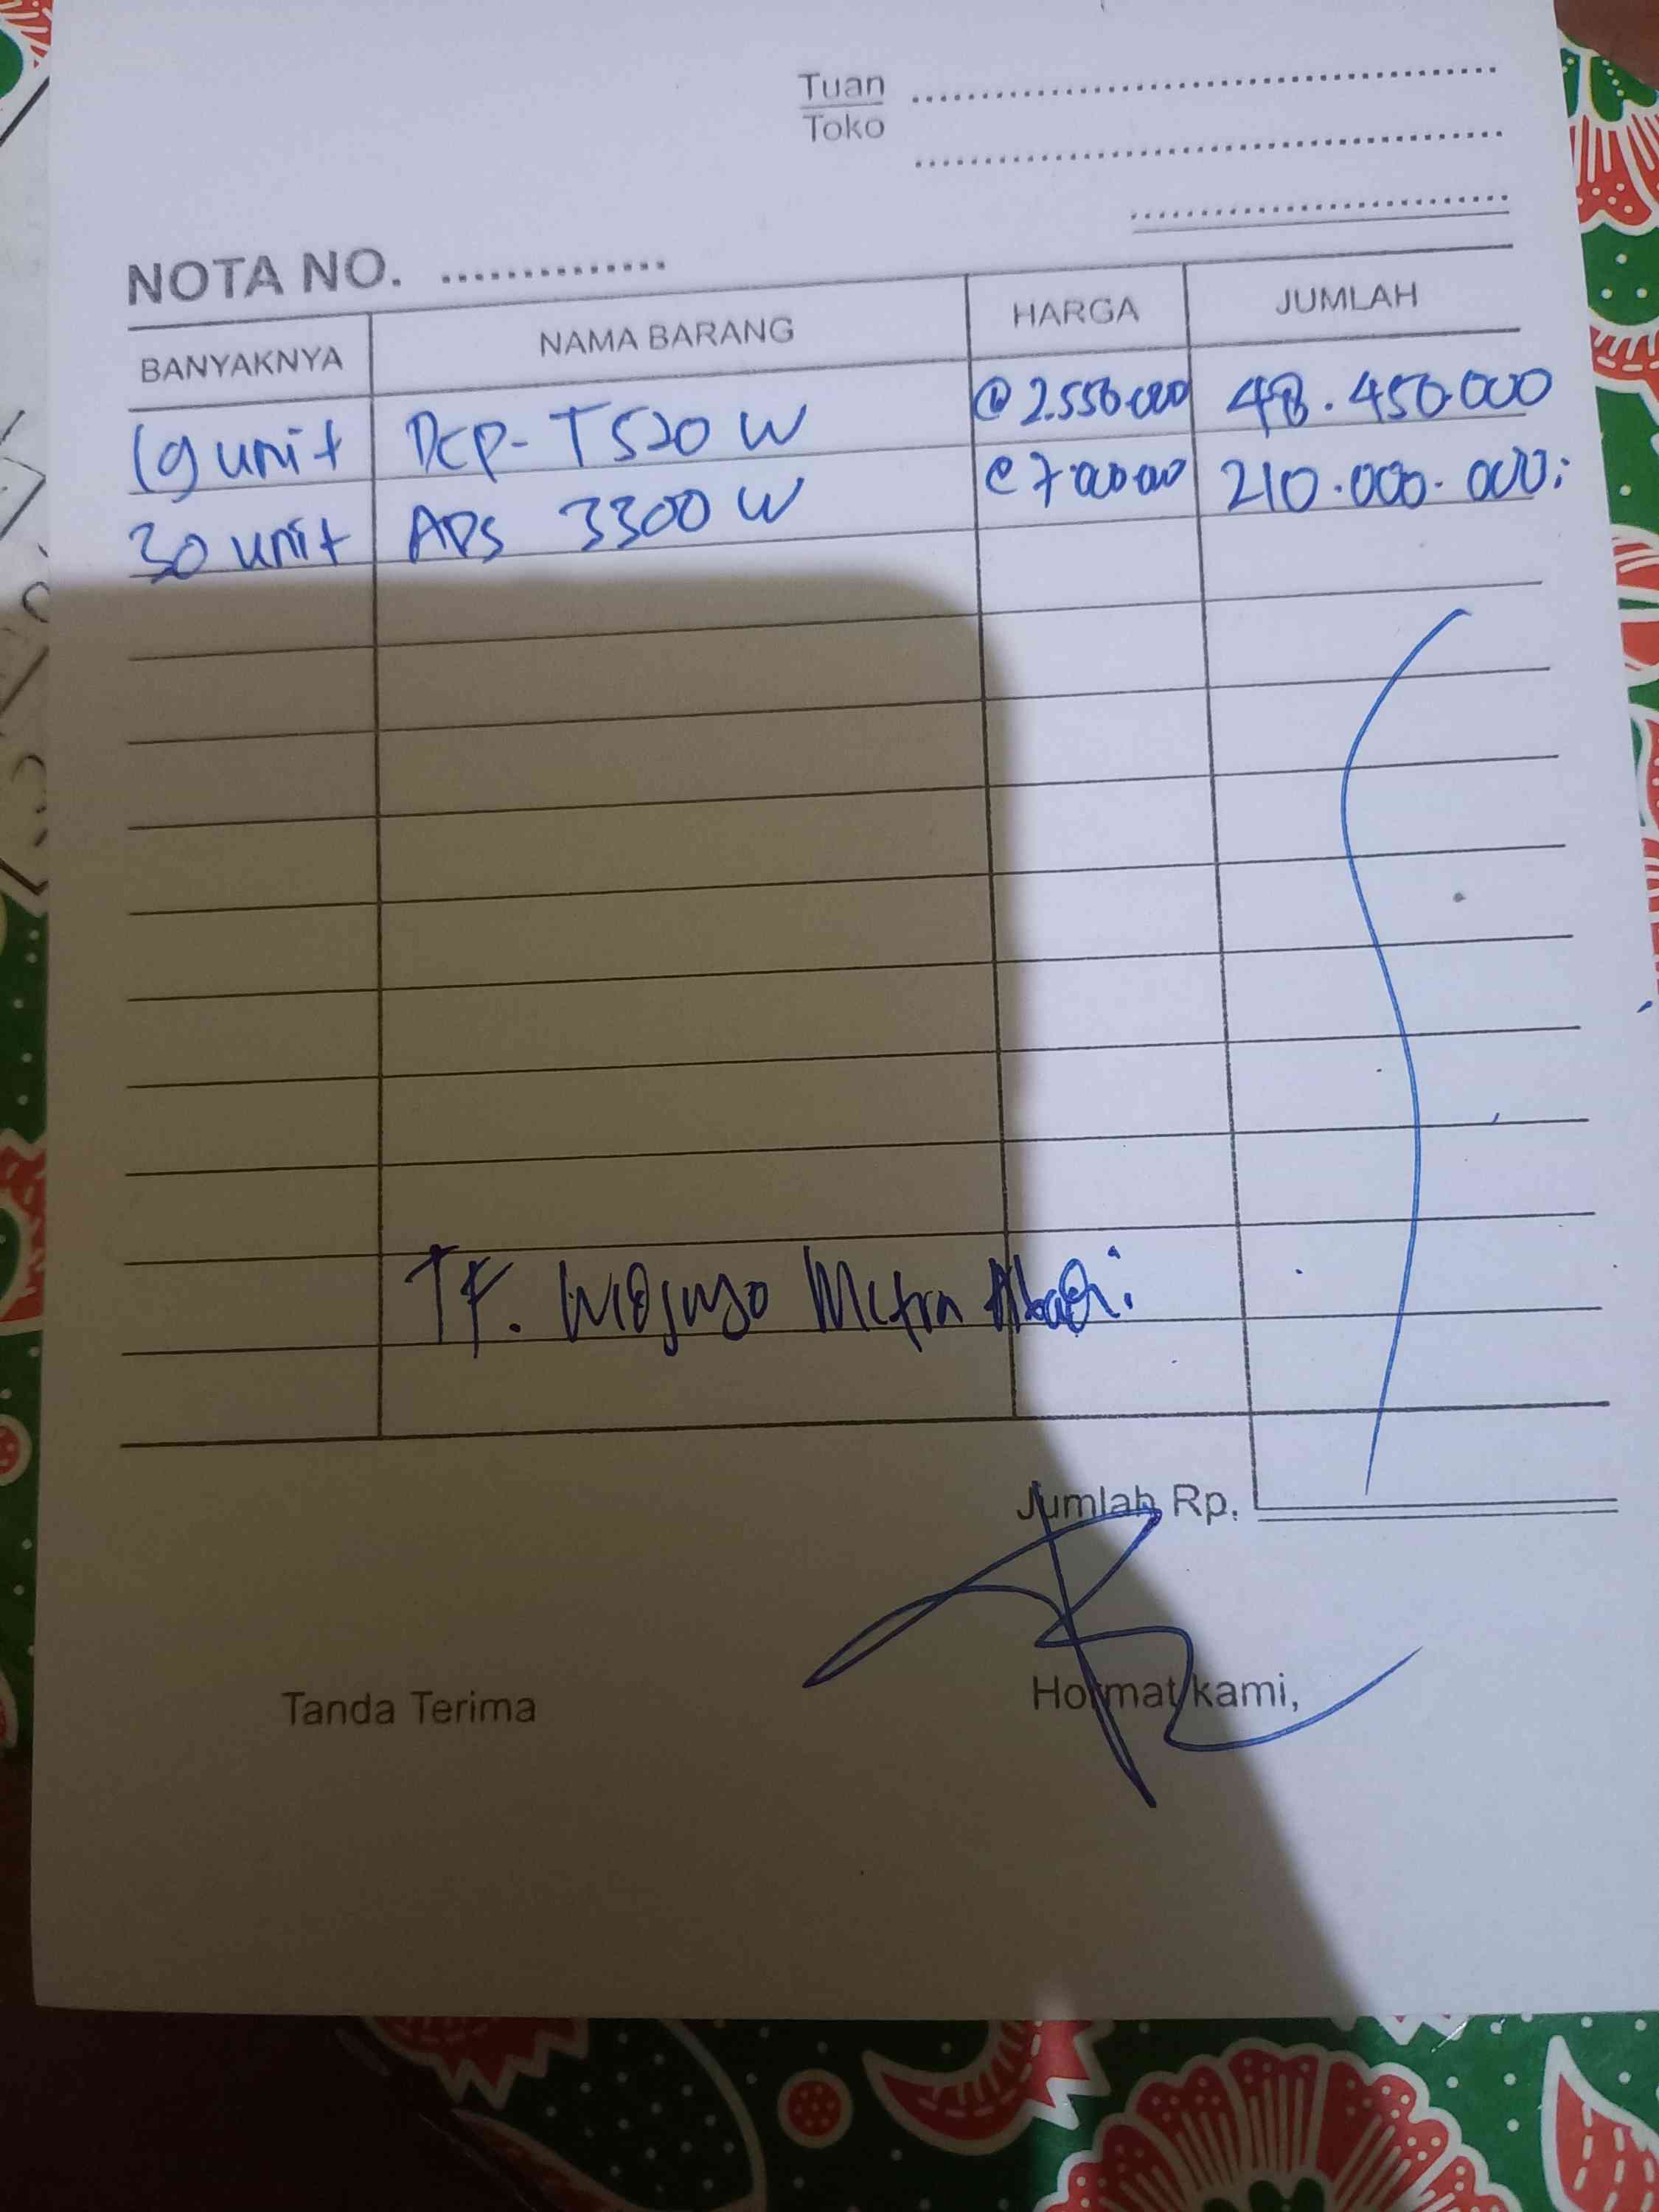 Tuan
Toko
NOTA NO. ..............
BANYAKNYA NAMA BARANG HARGA JUMLAH
19 unit DCP-T520W @ 2.550.000 48.450.000
30 unit ADS 3300W @ 7.000.000 210.000.000;
TF. Mitra Abadi.
Jumlah Rp.
Tanda Terima Hormat kami,